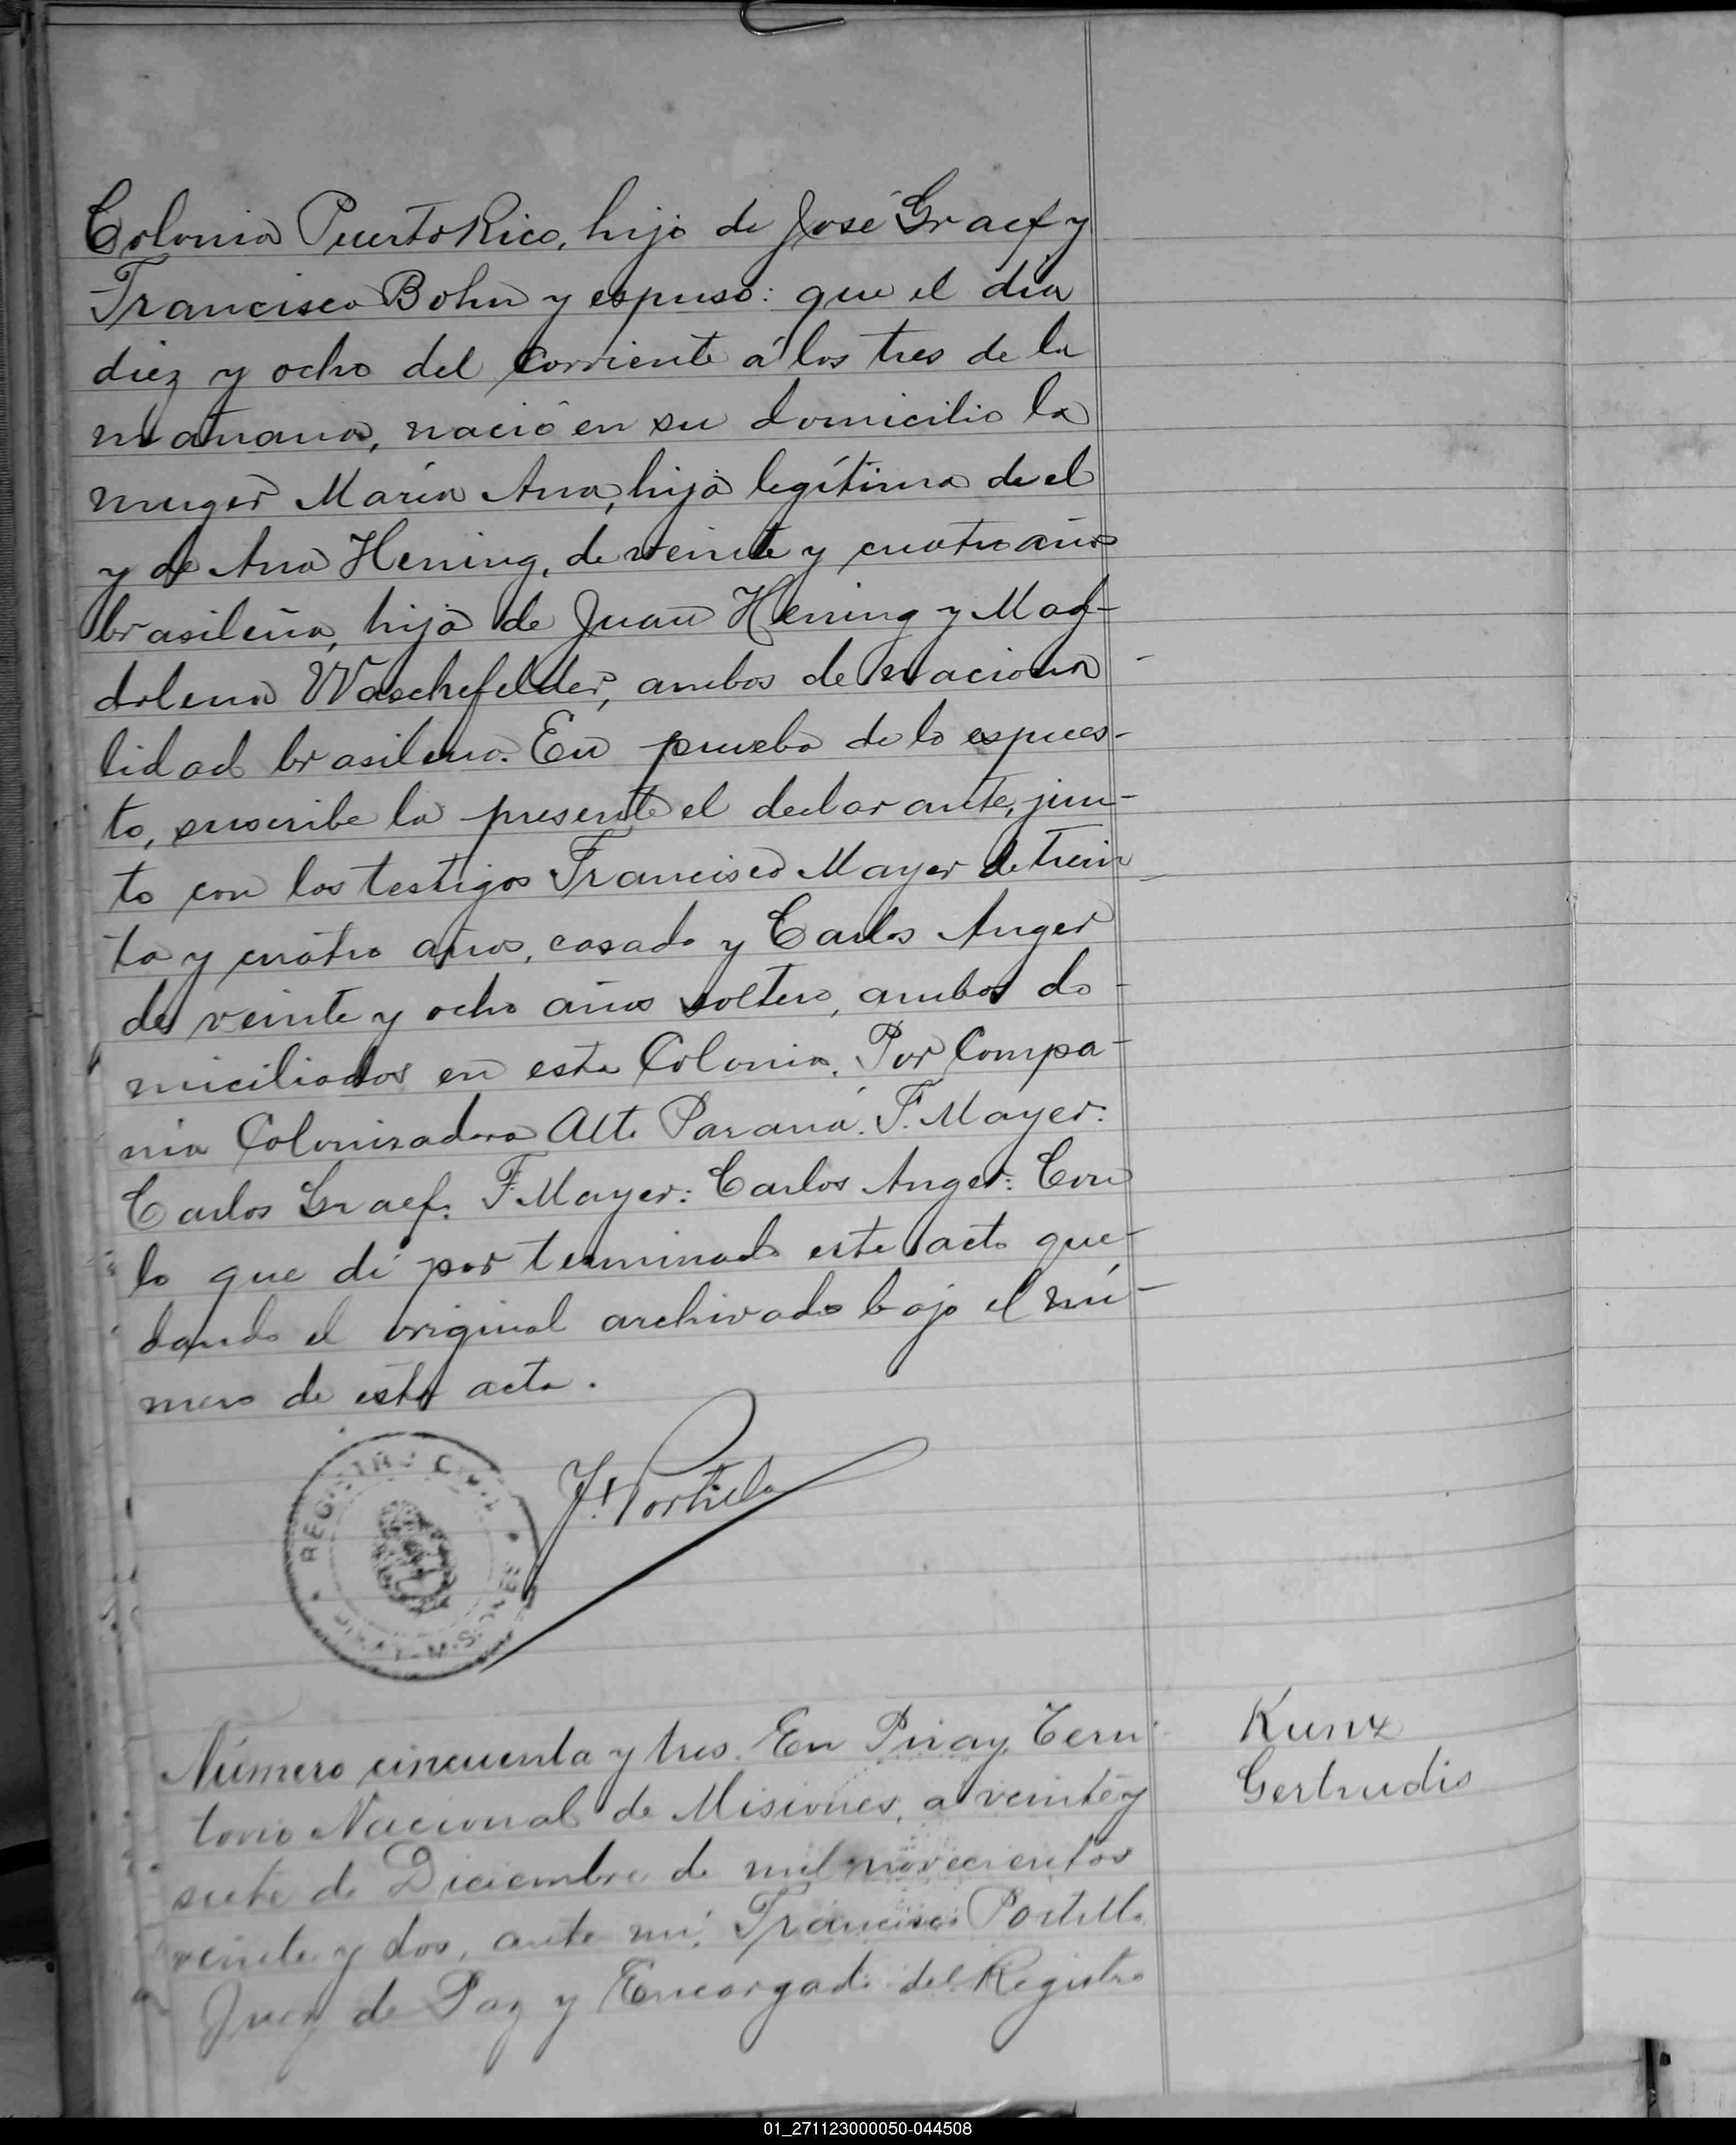 Colonia Puerto Rico, hijo de José Graef y
Francisca Bohn y espuso: que el dia
diez y ocho del corriente á las tres de la
mañana, nació en su domicilio la
muger María Ana, hija legítima de el
y de Ana Hening, de veinte y cuatro años
brasileña, hija de Juan Hening y Mag-
dalena Waschefelder, ambos de naciona
lidad brasilena. En prueba de lo espues-
to, suscribe la presente el declarante, jun-
to con los testigos Francisco Mayer de trein
ta y cuatro años, casado y Carlos Anger
de veinte y ocho años soltero, ambos do-
miciliados en esta Colonia. Por Compa-
nia Colonizadora Alto Paraná. F. Mayer:
Carlos Graef: F. Mayer: Carlos Anger: Con
lo que di por terminado este acto que-
dando el original archivado bajo el nú-
mero de esta acta.
REGISTRO CIVIL
PIRAY - MISIONES
F. Portillo
Número cincuenta y tres. En Piray, Terri-
torio Nacional de Misiones, a veinte y
siete de Diciembre de mil novecientos
veinte y dos, ante mi, Francisco Portillo
Juez de Paz y Encargado del Registro
Kunz
Gertrudis
01_271123000050-044508